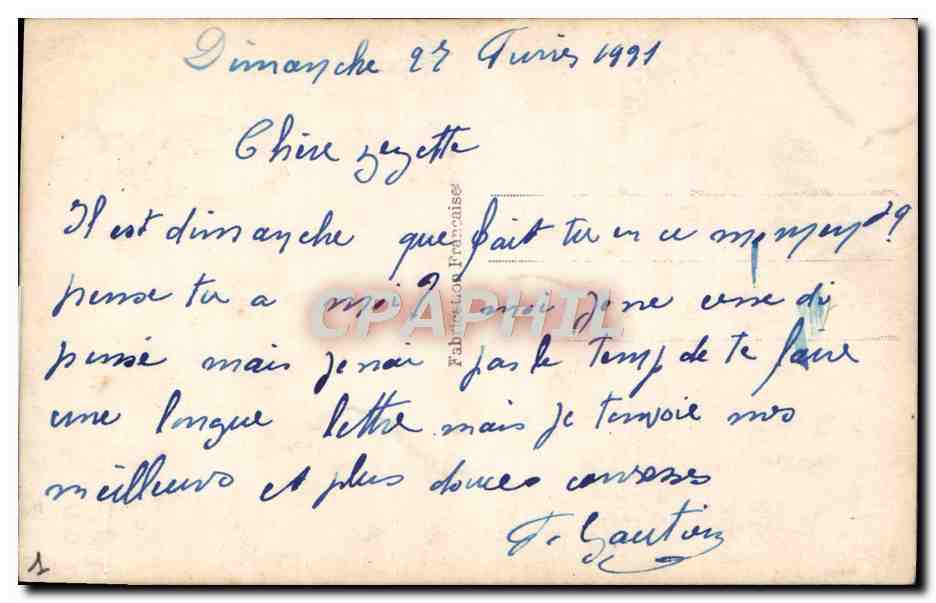 Dimanche 27 Février 1921
Chère zezette
Il est dimanche que fait tu en ce moment?
pense tu a moi? moi je ne cesse di
pensé mais jenai pas le temp de te faire
une longue lettre mais je tenvoie mes
meilleurs et plus douces caresses
F. Gautier
Fabrication Française
CPAPHIL
1